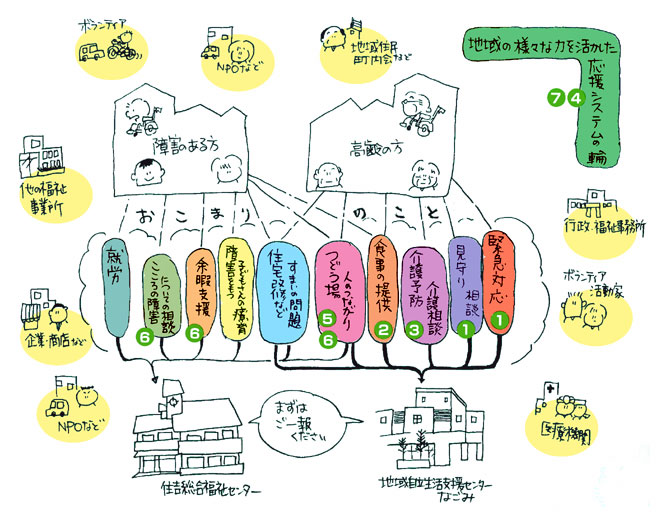 ボランティア
NPOなど
地域住民
町内会など
地域の様々な力を活かした
応援システムの輪
7 4
障害のある方
高齢の方
他の福祉
事業所
行政・福祉事務所
おこまりのこと
就労
こころの障害
についての相談
6
余暇支援
6
障害をもつ
子どもさんの療育
住宅改修など
すまいの問題
つどう場
人のつながり
5
6
食事の提供
2
介護予防
介護相談
3
見守り 相談
1
緊急対応
1
ボランティア
活動家
企業・商店など
NPOなど
医療機関
まずは
ご一報
ください
住吉総合福祉センター
地域自立生活支援センター
なごみ